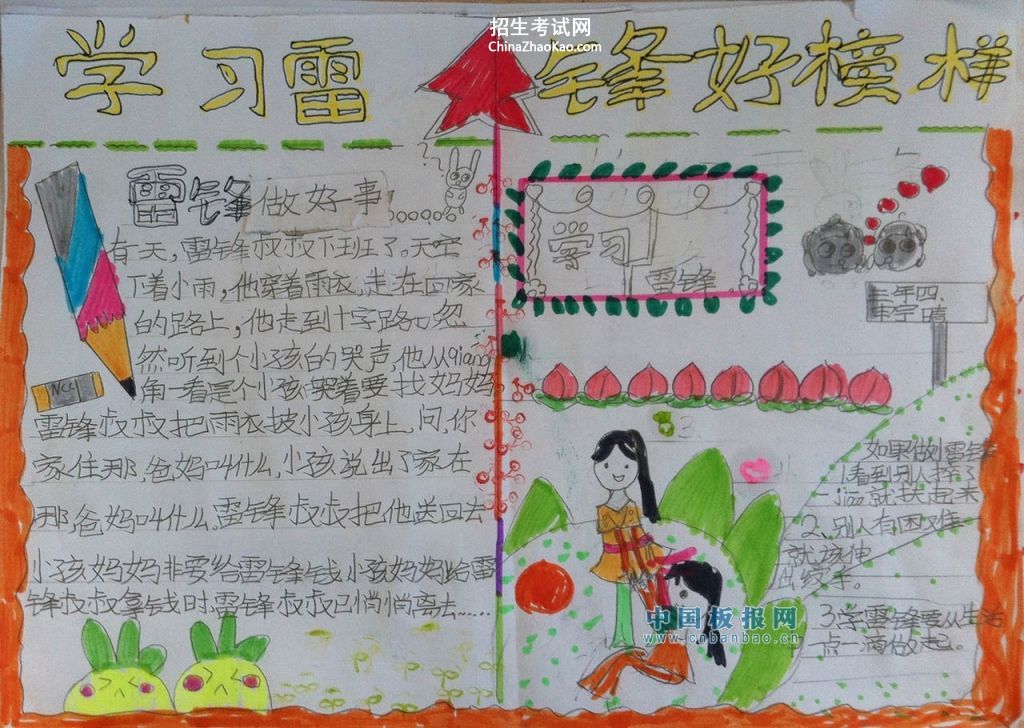 招生考试网
ChinaZhaoKao.com
学习雷锋好榜样
雷锋做好事
有一天，雷锋叔叔下班了。天空
下着小雨，他穿着雨衣走在回家
的路上，他走到十字路口，忽
然听到个小孩的哭声，他从qiang
角一看是个小孩哭着要找妈妈
雷锋叔叔把雨衣披小孩身上，问，你
家住那，爸妈叫什么，小孩说出了家在
那，爸妈叫什么。雷锋叔叔把他送回去
小孩妈妈非要给雷锋钱，小孩妈妈给雷
锋叔叔拿钱时，雷锋叔叔已悄悄离去……
NCC
学习
雷锋
年四、
晴
如果做小雷锋
1.看到别人摔了
jiao就扶起来
2、别人有困难
就该伸
出援手。
3.学雷锋要从生活
一点一滴做起。
中国板报网
www.cnbanbao.cn